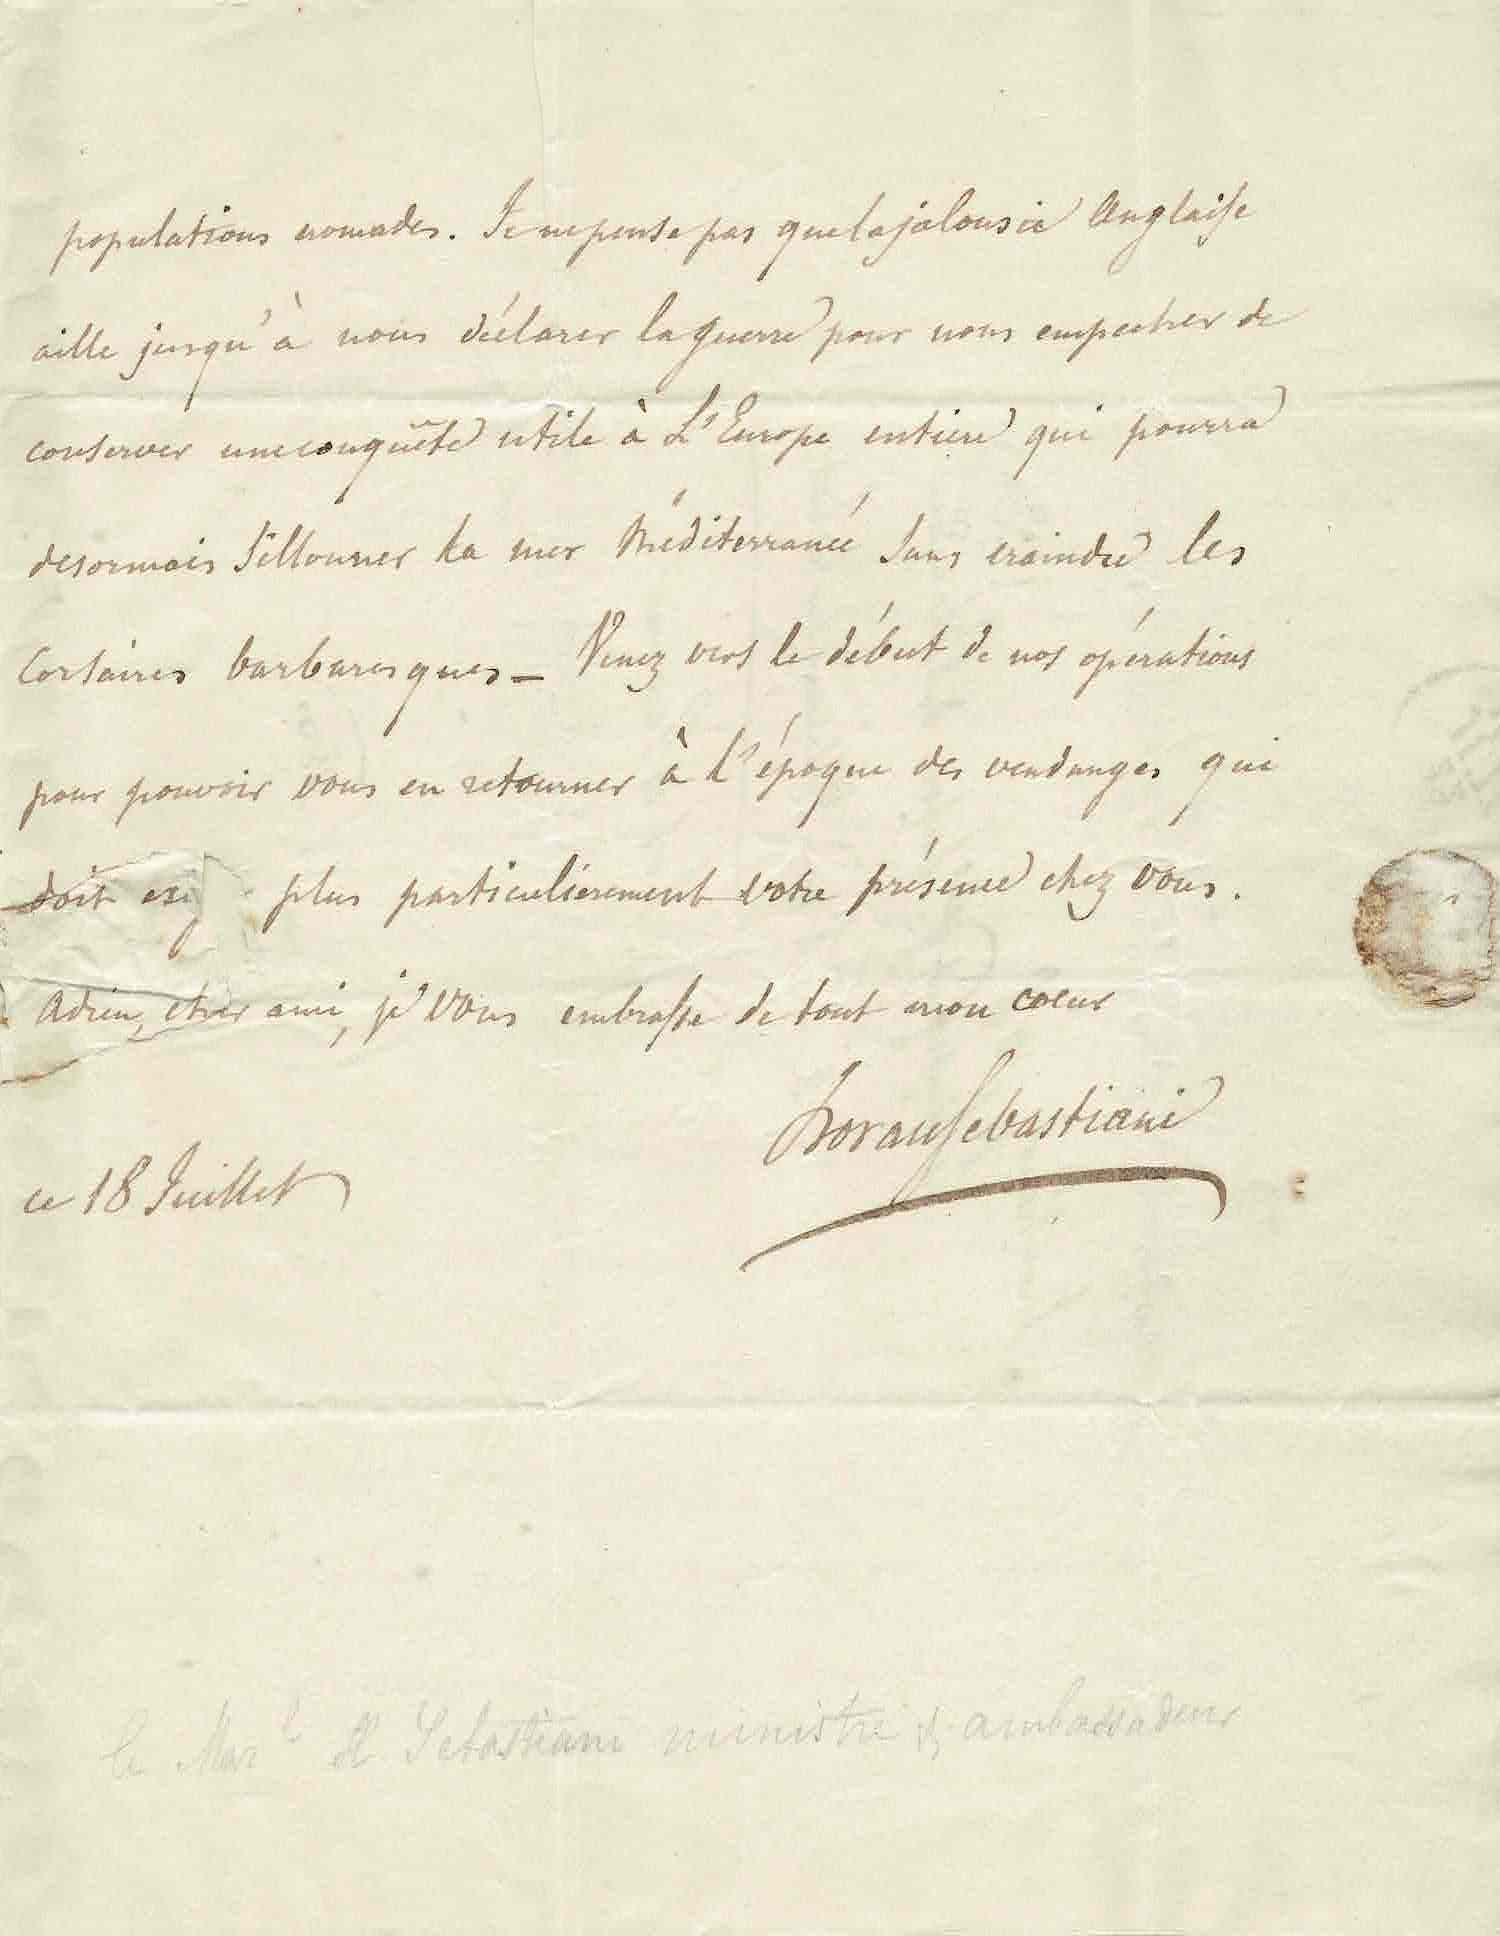 populations nomades. Je ne pense pas que la jalousie Anglaise
aille jusqu'à nous déclarer la guerre pour nous empecher de
conserver une conquête utile à L'Europe entiere qui pourra
desormais sillonner la mer Méditerranée sans craindre les
Corsaires barbaresques _ Venez vers le début de nos opérations
pour pouvoir vous en retourner à l'époque des vendanges qui
doit exi plus particulierement votre présence chez vous.
Adieu, cher ami, je vous embrasse de tout mon coeur
horace Sebastiani
ce 18 Juillet
le Mar^l Sebastiani ministre & ambassadeur